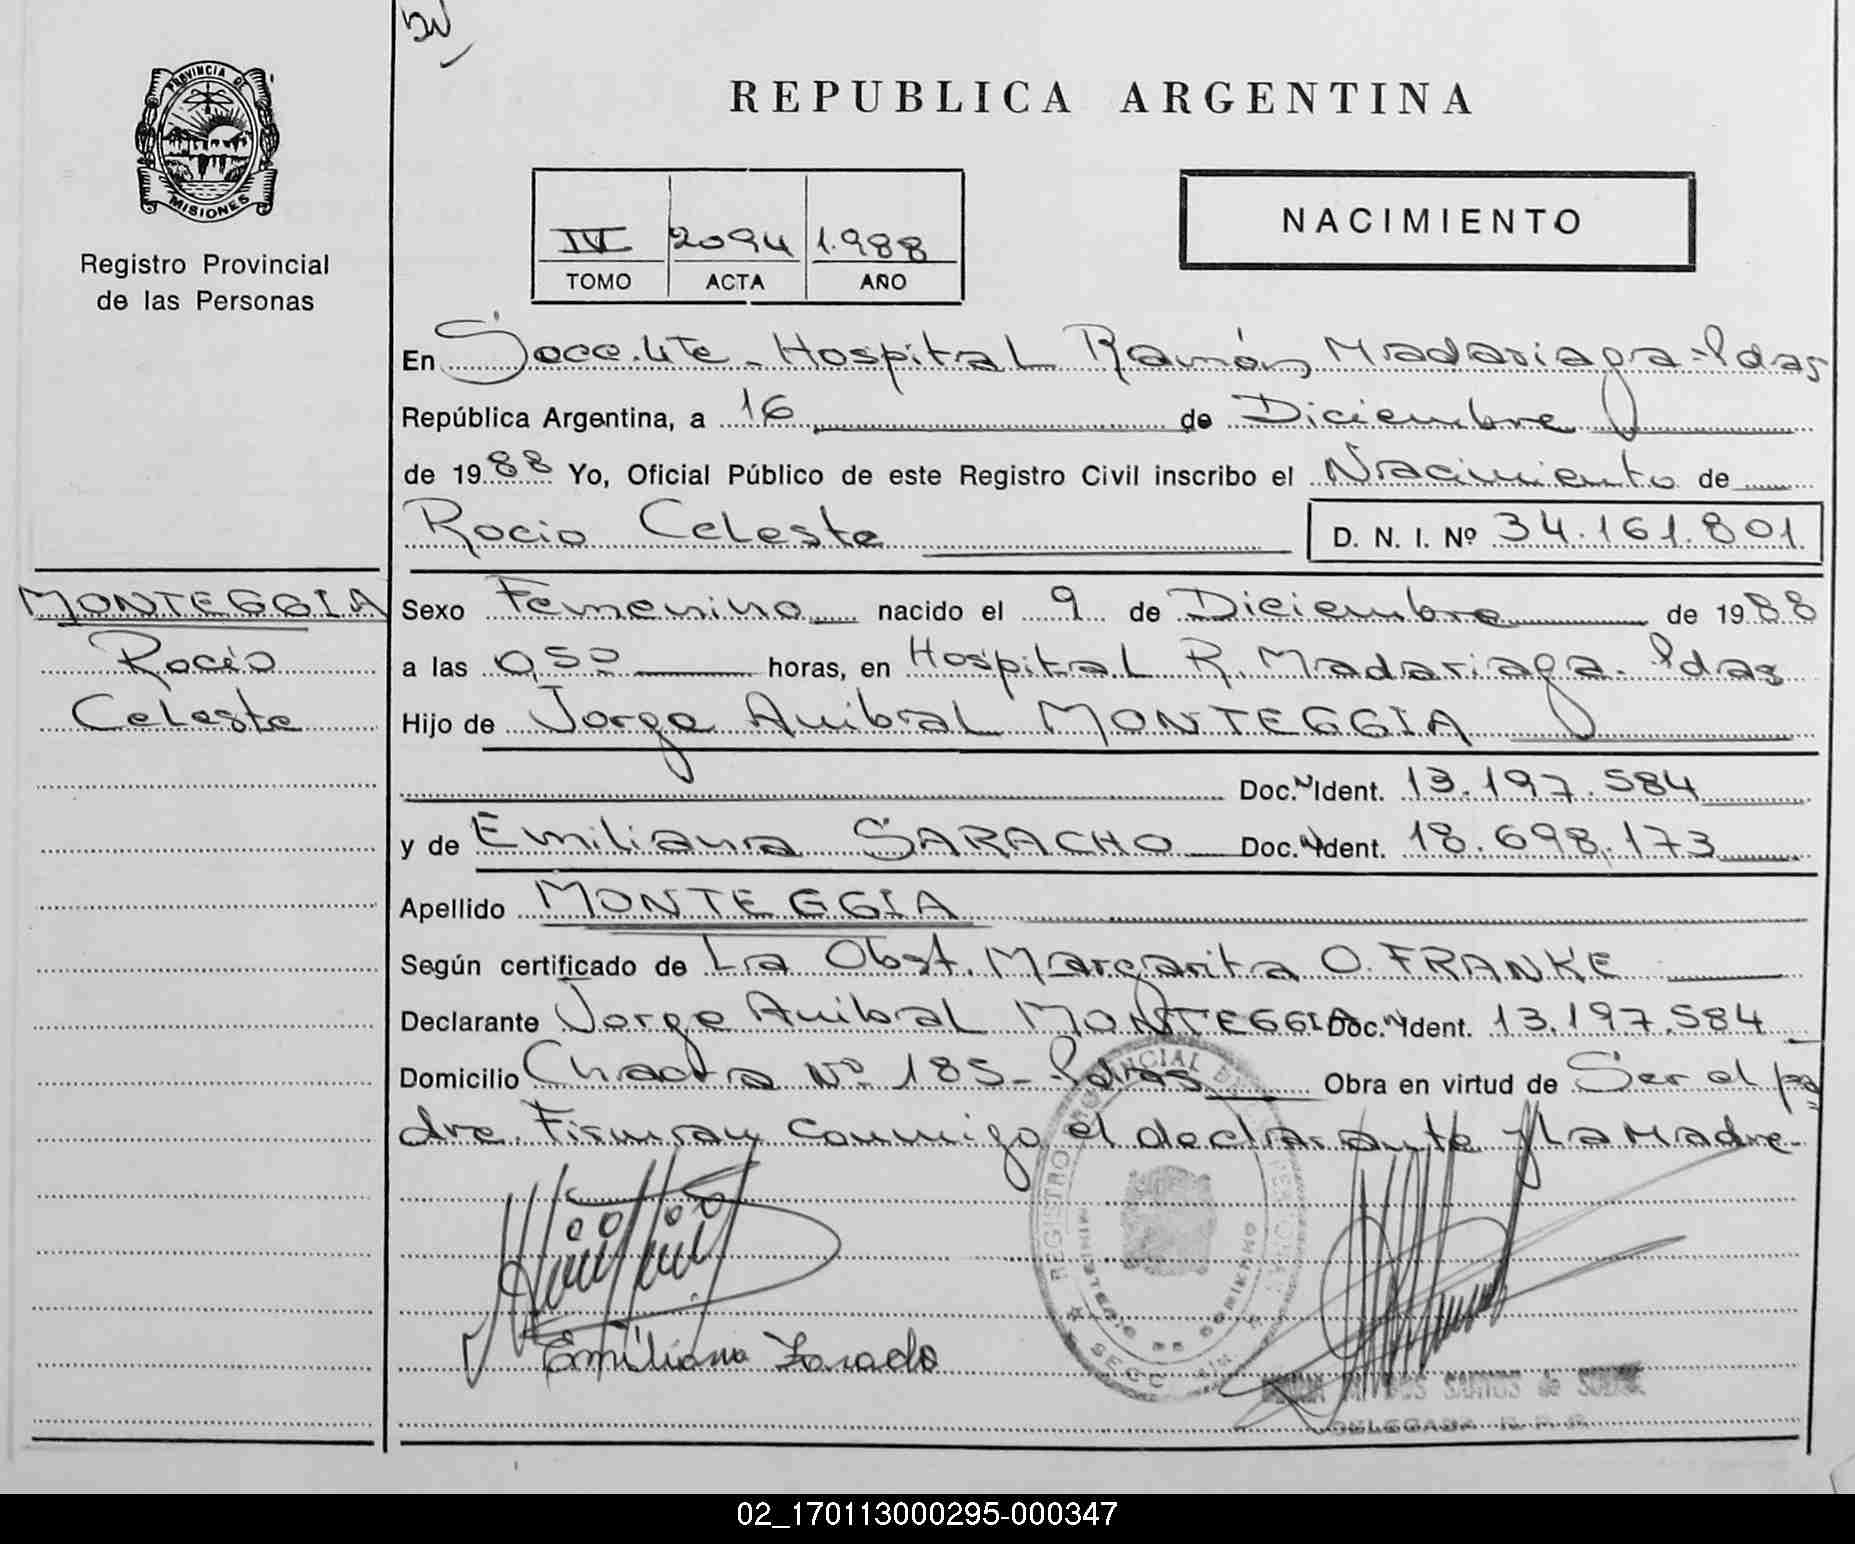 PROVINCIA DE
MISIONES
Registro Provincial
de las Personas
REPUBLICA ARGENTINA
IV 2094 1.988
TOMO ACTA AÑO
NACIMIENTO
En Secc. 4te. Hospital Ramón Madariaga - Pdas
República Argentina, a 16 de Diciembre
de 1988 Yo, Oficial Público de este Registro Civil inscribo el Nacimiento de
Rocio Celeste D. N. I. Nº 34.161.801
MONTEGGIA
Rocio
Celeste
Sexo Femenino nacido el 9 de Diciembre de 1988
a las 0,50 horas, en Hospital R. Madariaga - Pdas
Hijo de Jorge Anibal MONTEGGIA
Doc. N Ident. 13.197.584
y de Emiliana SARACHO Doc. N Ident. 18.698.173
Apellido MONTEGGIA
Según certificado de La Obst. Margarita O. FRANKE
Declarante Jorge Anibal MONTEGGIA Doc. N Ident. 13.197.584
Domicilio Chacra Nº 185 - Pdas Obra en virtud de Ser el pa
dre. Firman conmigo el declarante y La Madre-
REGISTRO PROVINCIAL DE
MINISTERIO DE GOBIERNO
SECC
Emiliana
SANTOS de
DELEGADA R. P. P.
02_170113000295-000347